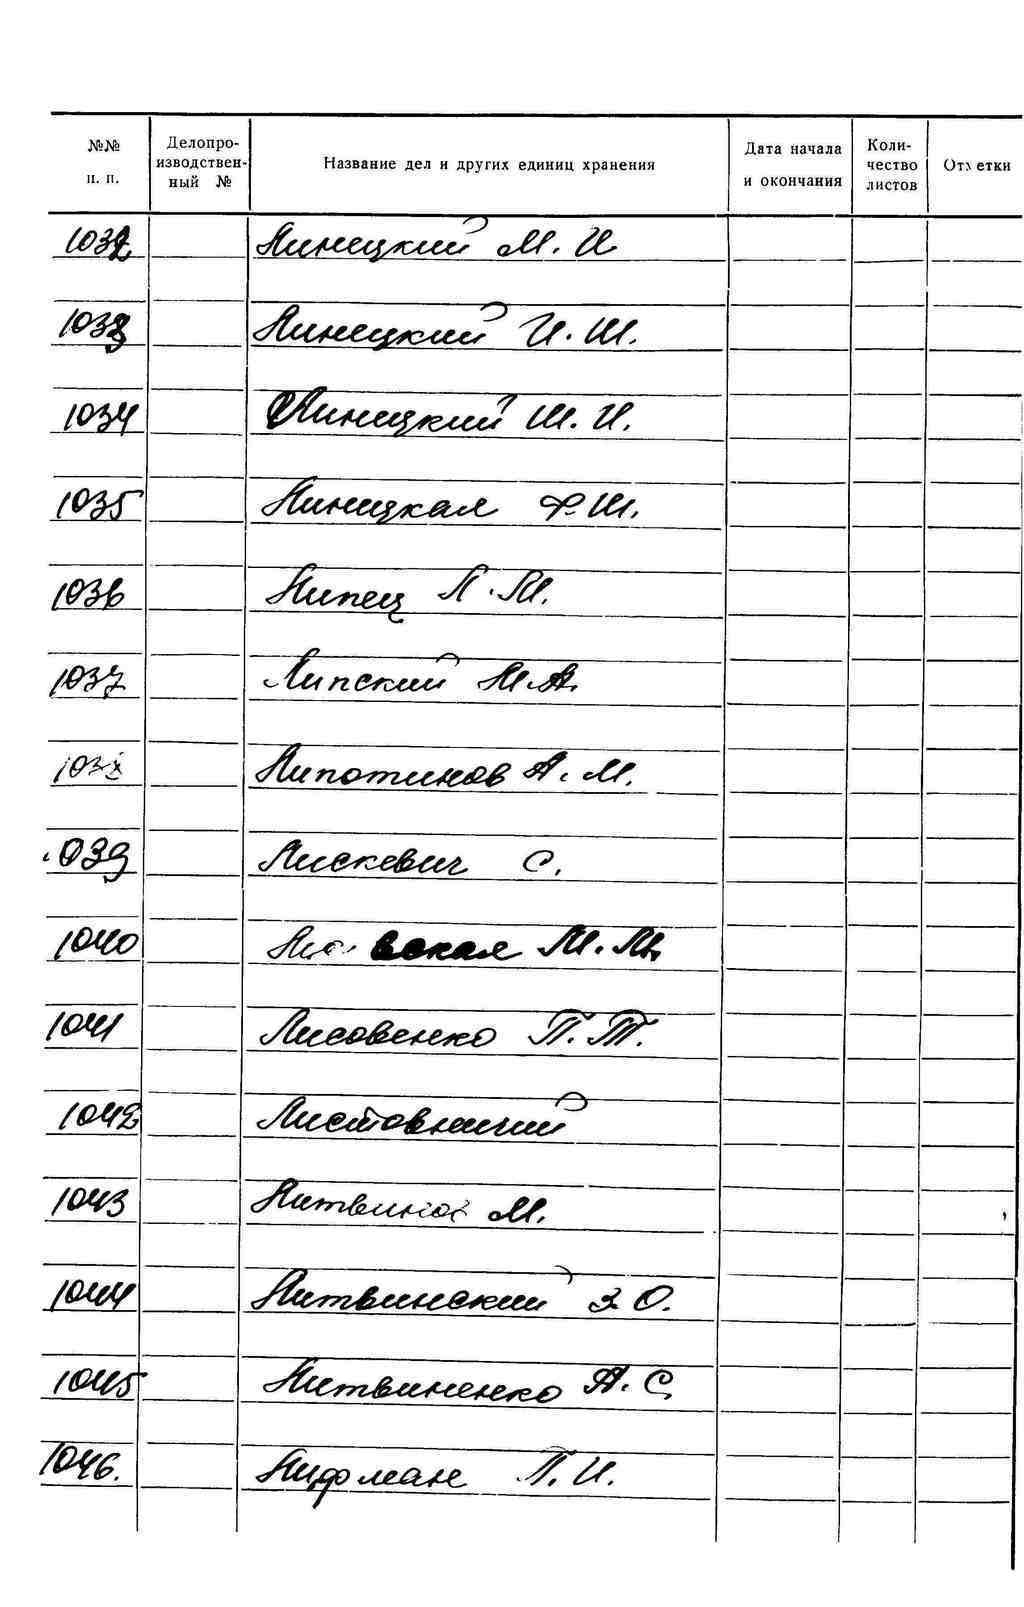 №№ п. п.
Делопро-
изводствен-
ный №
Название дел и других единиц хранения
Дата начала
и окончания
Коли-
чество
листов
Отметки
1032 Линецкий М. И.
1033 Линецкий И. Ш.
1034 Линицкий Ш. И.
1035 Линицкая Ф. Ш.
1036 Липец Л. М.
1037 Липский М. А.
1038 Липотинов А. М.
1039 Лискевич С.
1040 М. М.
1041 Лисовенко П. Т.
1042 Листовничий
1043 Литвинов М.
1044 Литвинский З. О.
1045 Литвиненко А. С.
1046. Лифман П. И.